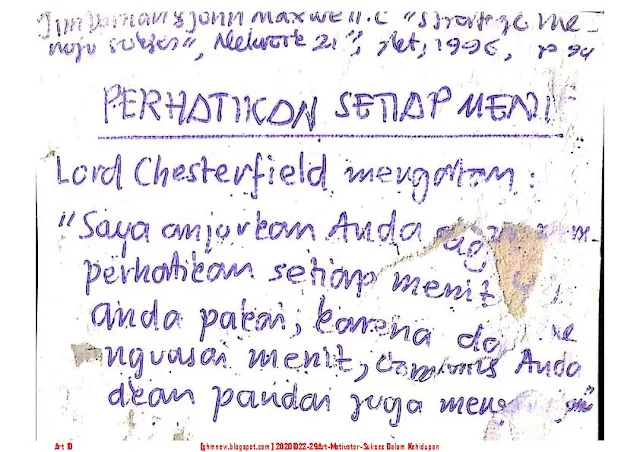 Jim Dornan & John Maxwell. C "Strategi me-
nuju sukses", Network 21", Net, 1996, p 94
PERHATIKAN SETIAP MENI
Lord Chesterfield mengatan :
"Saya anjurkan Anda
perhatikan setiap menit
anda pakai, karena
nguasai menit, Anda
akan pandai juga
Art ID [ghmnew.blogspot.com] 20201022-29Art-Motivator-Sukses Dalam Kehidupan